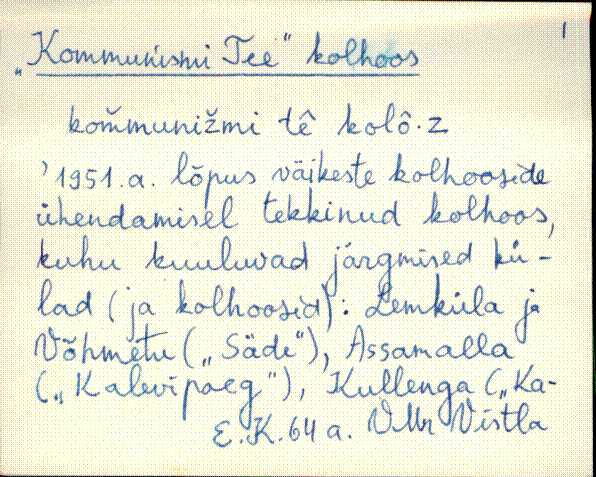 1
„Kommunismi Tee" kolhoos
kom̆munižmi tê kolô·z
'1951.a. lõpus väikeste kolhooside
ühendamisel tekkinud kolhoos,
kuhu kuuluvad järgmised kü-
lad (ja kolhoosid): Lemküla ja
Võhmetu („Säde"), Assamalla
(„Kalevipoeg"), Kullenga („Ka-
E.K. 64 a. VMr Vistla